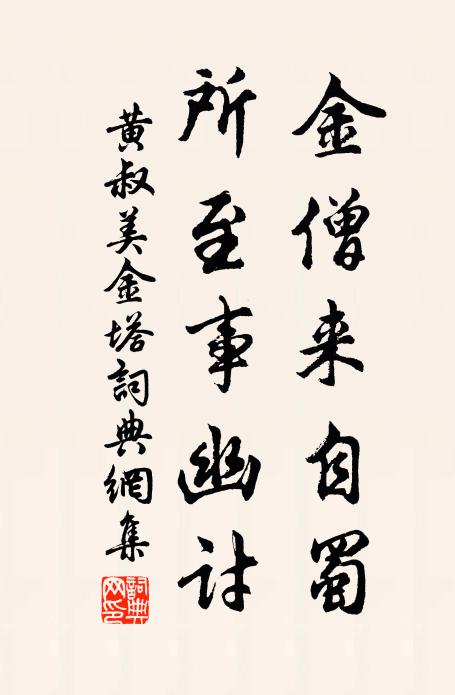 金僧来自蜀
所至事幽討
黄叔美金塔詞典網集
詞典网印